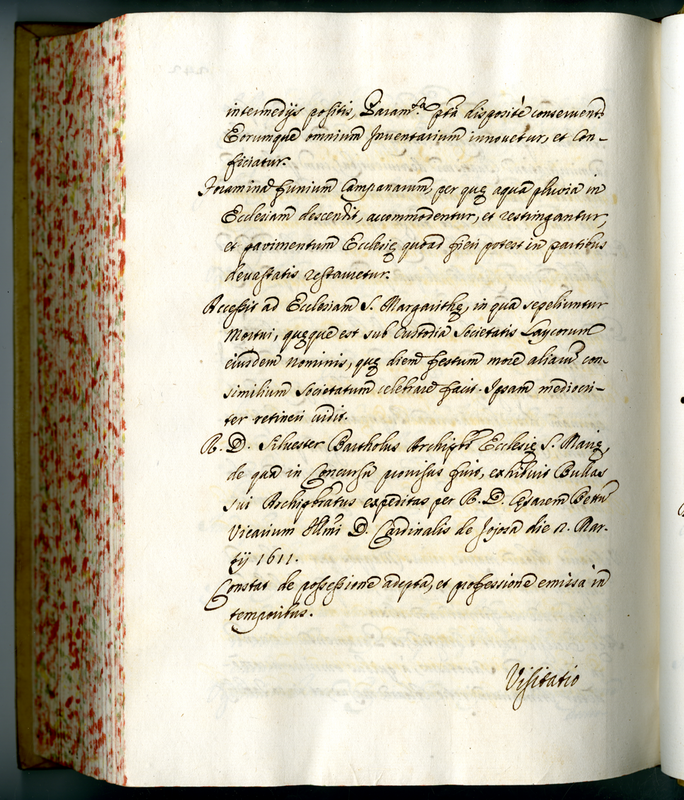 intermedijs positis, Param.ta pta disposite conserventr
Eorumque omnium Inventarium innovetur, et Con-
ficiatur.
Foramina funium Campanarum, per quę aqua pluvia in
Ecclesiam descendit, accommodentur, et restringantur,
et pavimentum Ecclesię quoad fieri potest in partibus
devastatis restauretur.
Accessit ad Ecclesiam S. Margarithę, in qua sepeliuntur
Mortui, quęque est sub Custodia Societatis Laycorum
eiusdem nominis, quę diem festum more aliarum con-
similium Societatum celebrare facit. Ipsam mediocri-
ter retineri vidit.
R. D. Silvester Bartholus Archipr Ecclesię S. Marię,
de qua in Concursu provisus fuit, exhibuit Bullas
sui Archiprbratus expeditas per R. D. Cęsarem
Vicarium Illmi D. Cardinalis de Joyosa die 12. Mar-
tij 1611.
Constat de possessione adepta, et professione emissa in
temporibus.
Visitatio